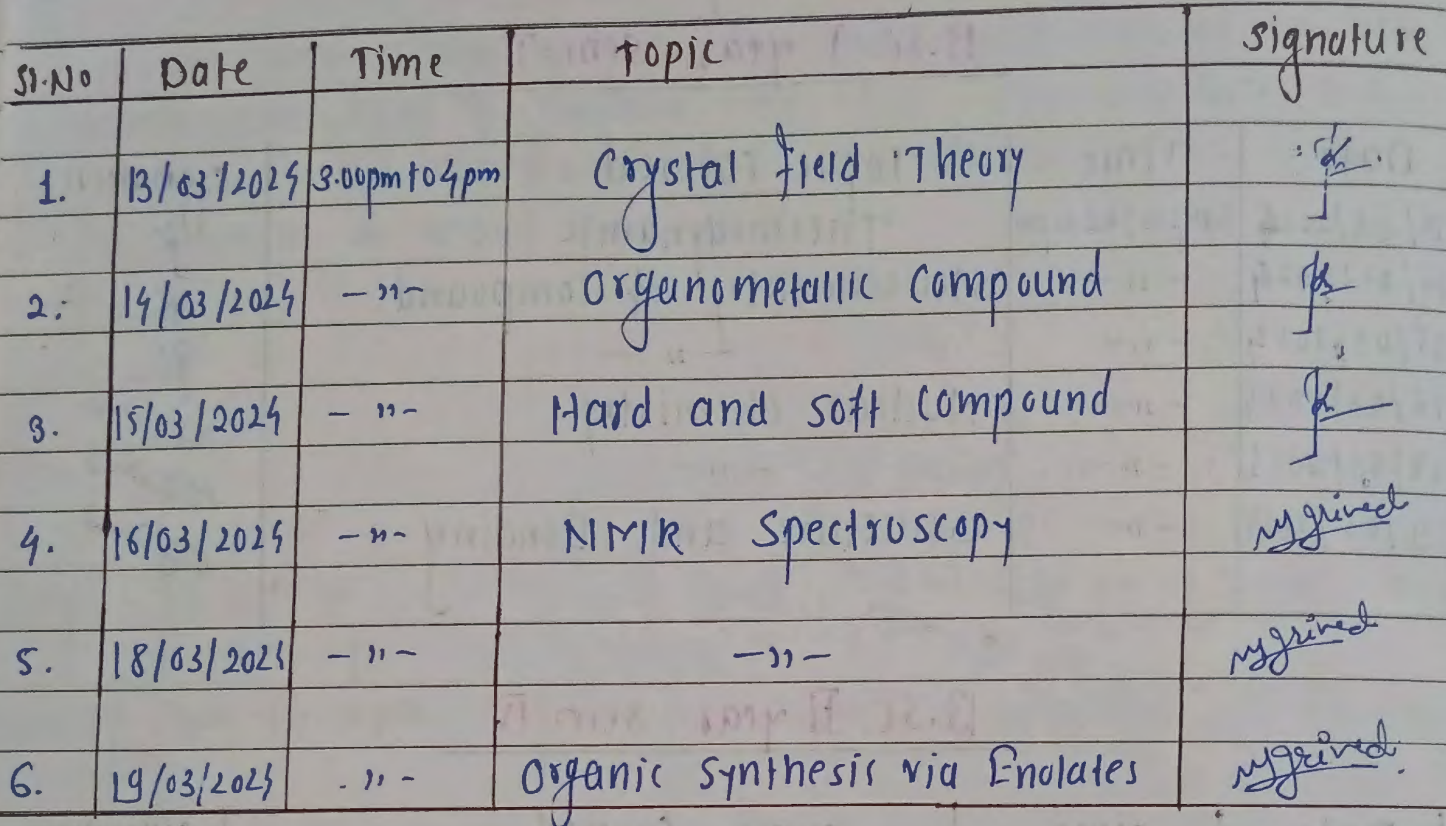 Sl.No Date Time Topic Signature
1. 13/03/2024 3.00pm to 4pm Crystal field Theory
2. 14/03/2024 -"- Organometallic Compound
3. 15/03/2024 -"- Hard and soft Compound
4. 16/03/2024 -"- NMR Spectroscopy
5. 18/03/2024 -"- -"-
6. 19/03/2024 -"- Organic Synthesis via Enolates